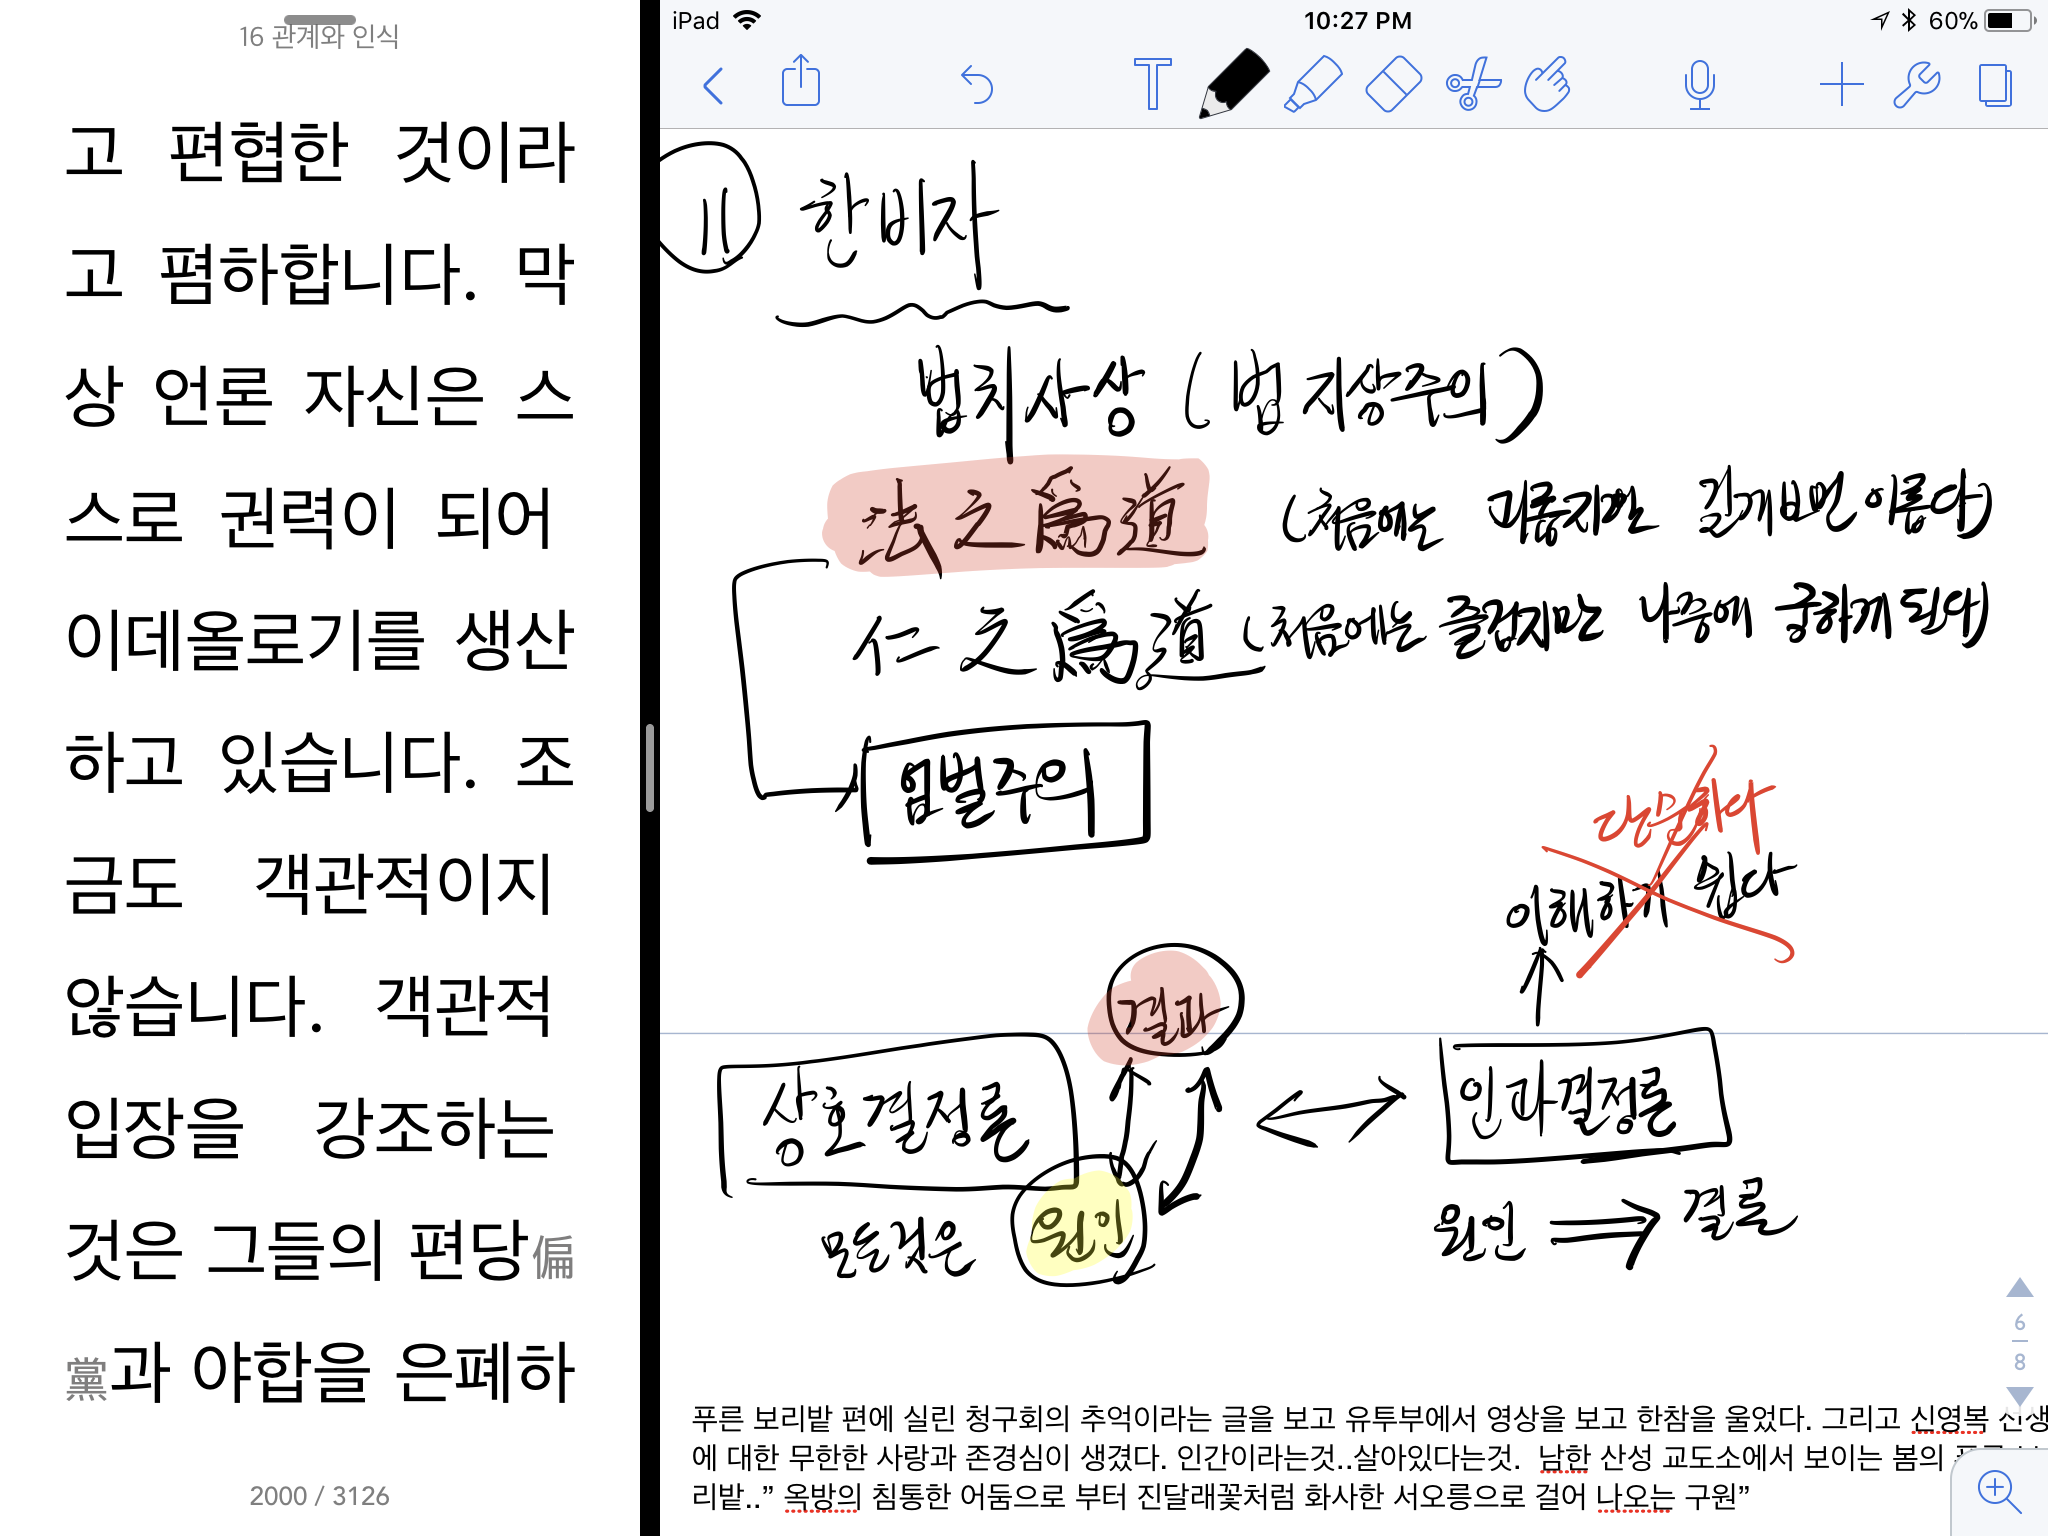 16 관계와 인식
고 편협한 것이라
고 폄하합니다. 막
상 언론 자신은 스
스로 권력이 되어
이데올로기를 생산
하고 있습니다. 조
금도 객관적이지
않습니다. 객관적
입장을 강조하는
것은 그들의 편당偏
黨과 야합을 은폐하
2000 / 3126
iPad 10:27 PM 60%
11 한비자
법치사상 (법지상주의)
法之爲道 (처음에는 괴롭지만 길게보면 이롭다)
仁之爲道 (처음에는 즐겁지만 나중에 궁하게 된다)
엄벌주의
단순하다
이해하기 쉽다
결과
상호결정론
인과결정론
모든것은 원인
원인 ⇒ 결론
6
8
푸른 보리밭 편에 실린 청구회의 추억이라는 글을 보고 유투부에서 영상을 보고 한참을 울었다. 그리고 신영복 선생
에 대한 무한한 사랑과 존경심이 생겼다. 인간이라는것..살아있다는것. 남한 산성 교도소에서 보이는 봄의
리밭..” 옥방의 침통한 어둠으로 부터 진달래꽃처럼 화사한 서오릉으로 걸어 나오는 구원”